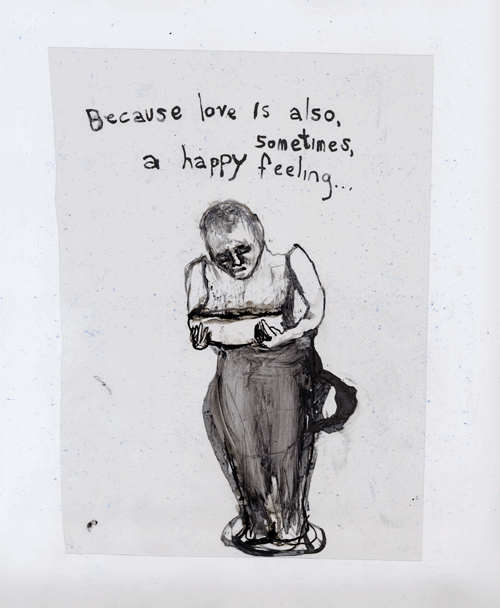 Because love is also,
sometimes,
a happy feeling...